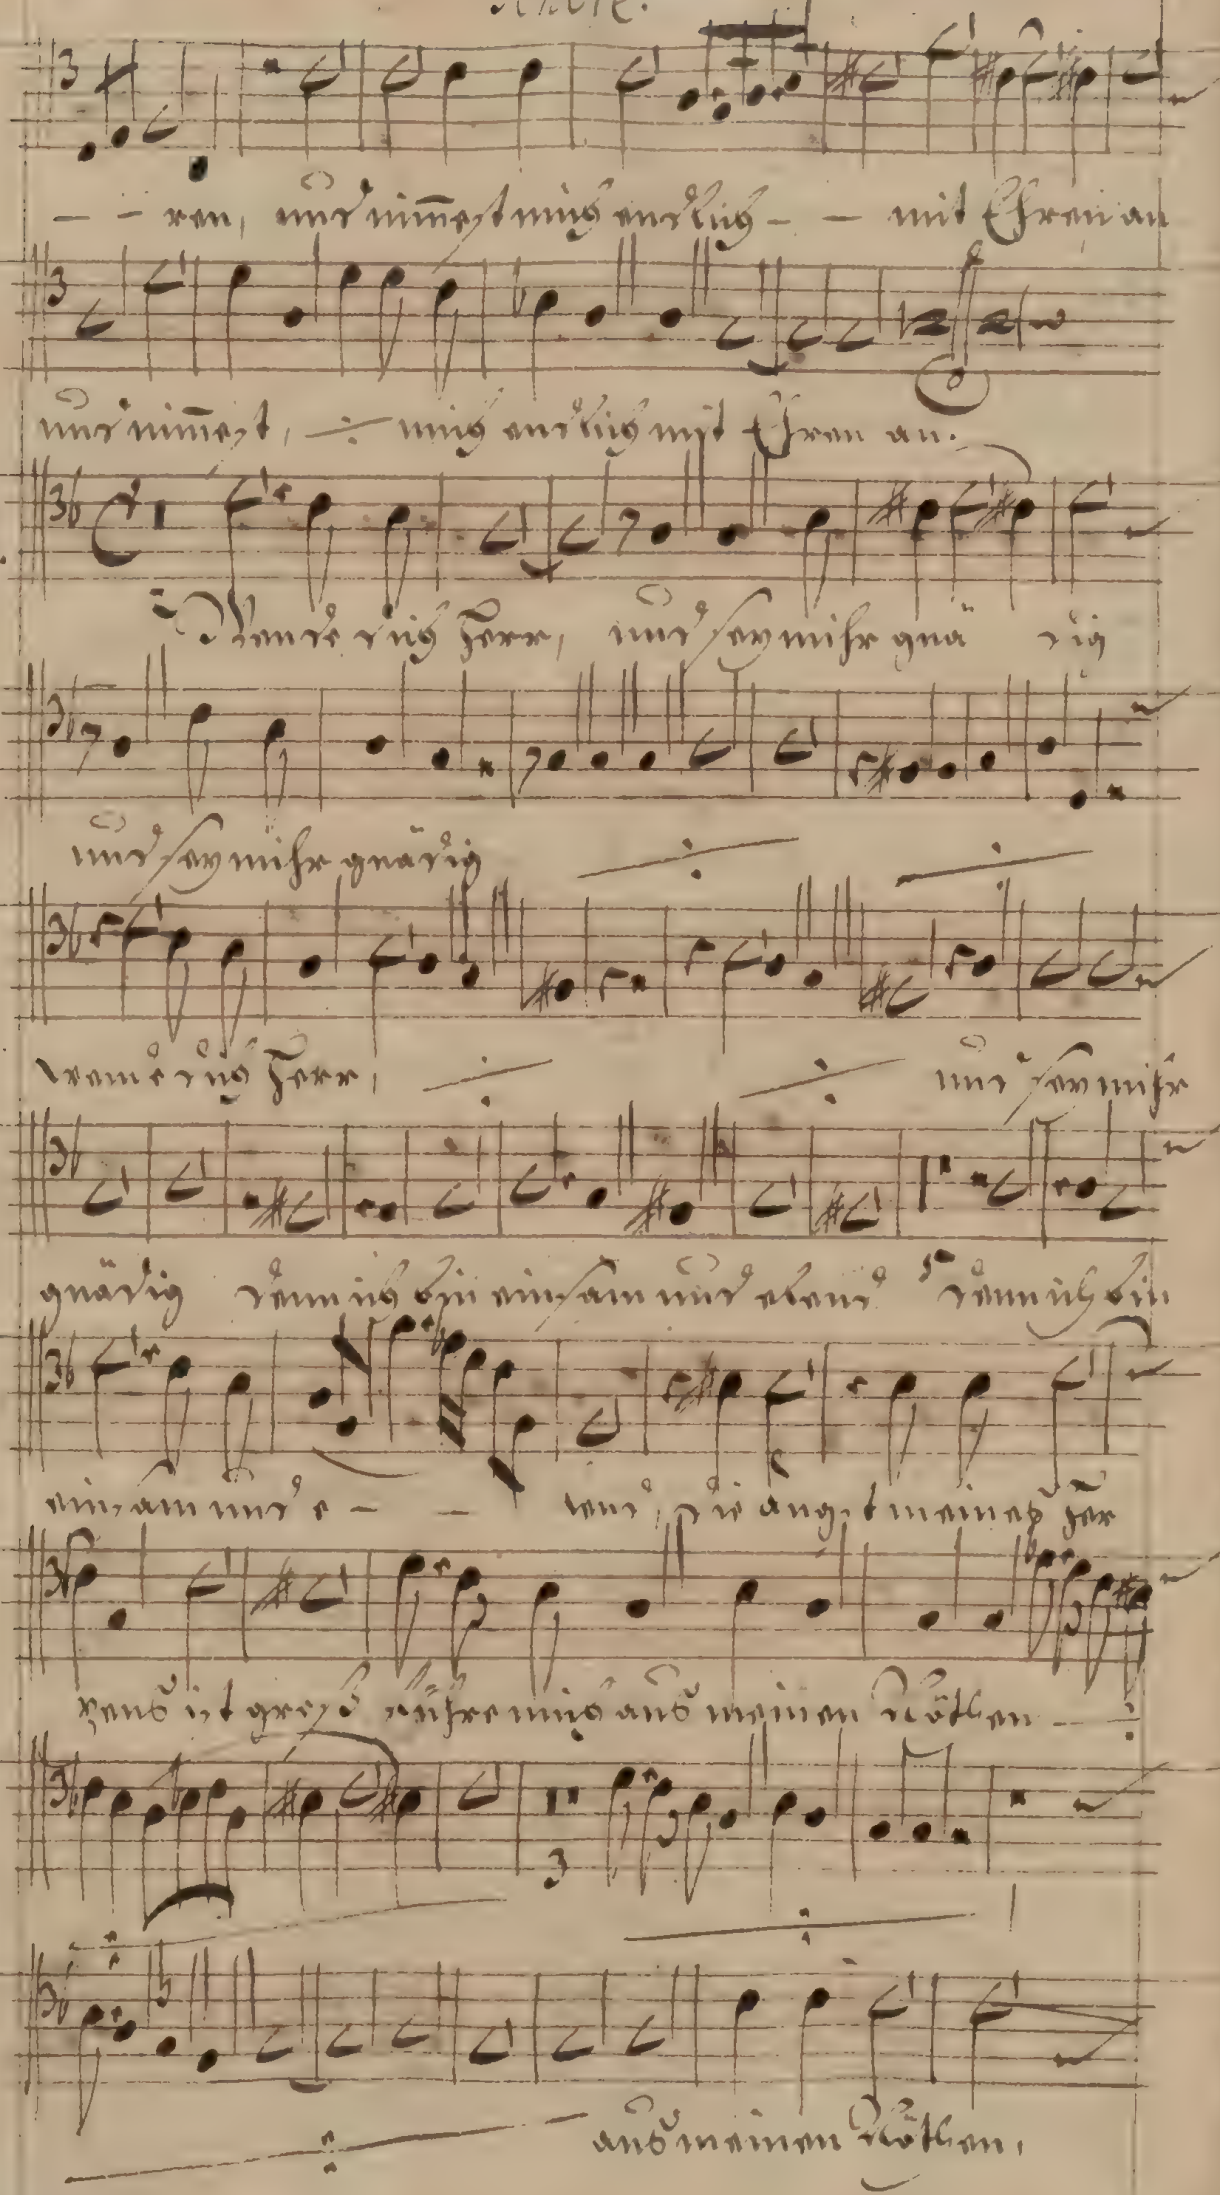 - - ren, und nim̄est mich endlich - - mit Ehren an
und nim̄est, ÷ mich endlich mit Ehren an.
Wende dich Herr, und sey mihr gnä dig
und sey mihr gnädig ÷ ÷
wende dich Herr, ÷ ÷ und sey mihr
gnädig denn ich bin einsam und elend denn ich bin
einsam und e - - lend, die angst meines Her
zens ist groß führe mich aus meinen Nöthen - ÷
3
÷ ÷
÷ aus meinen Nöthen,